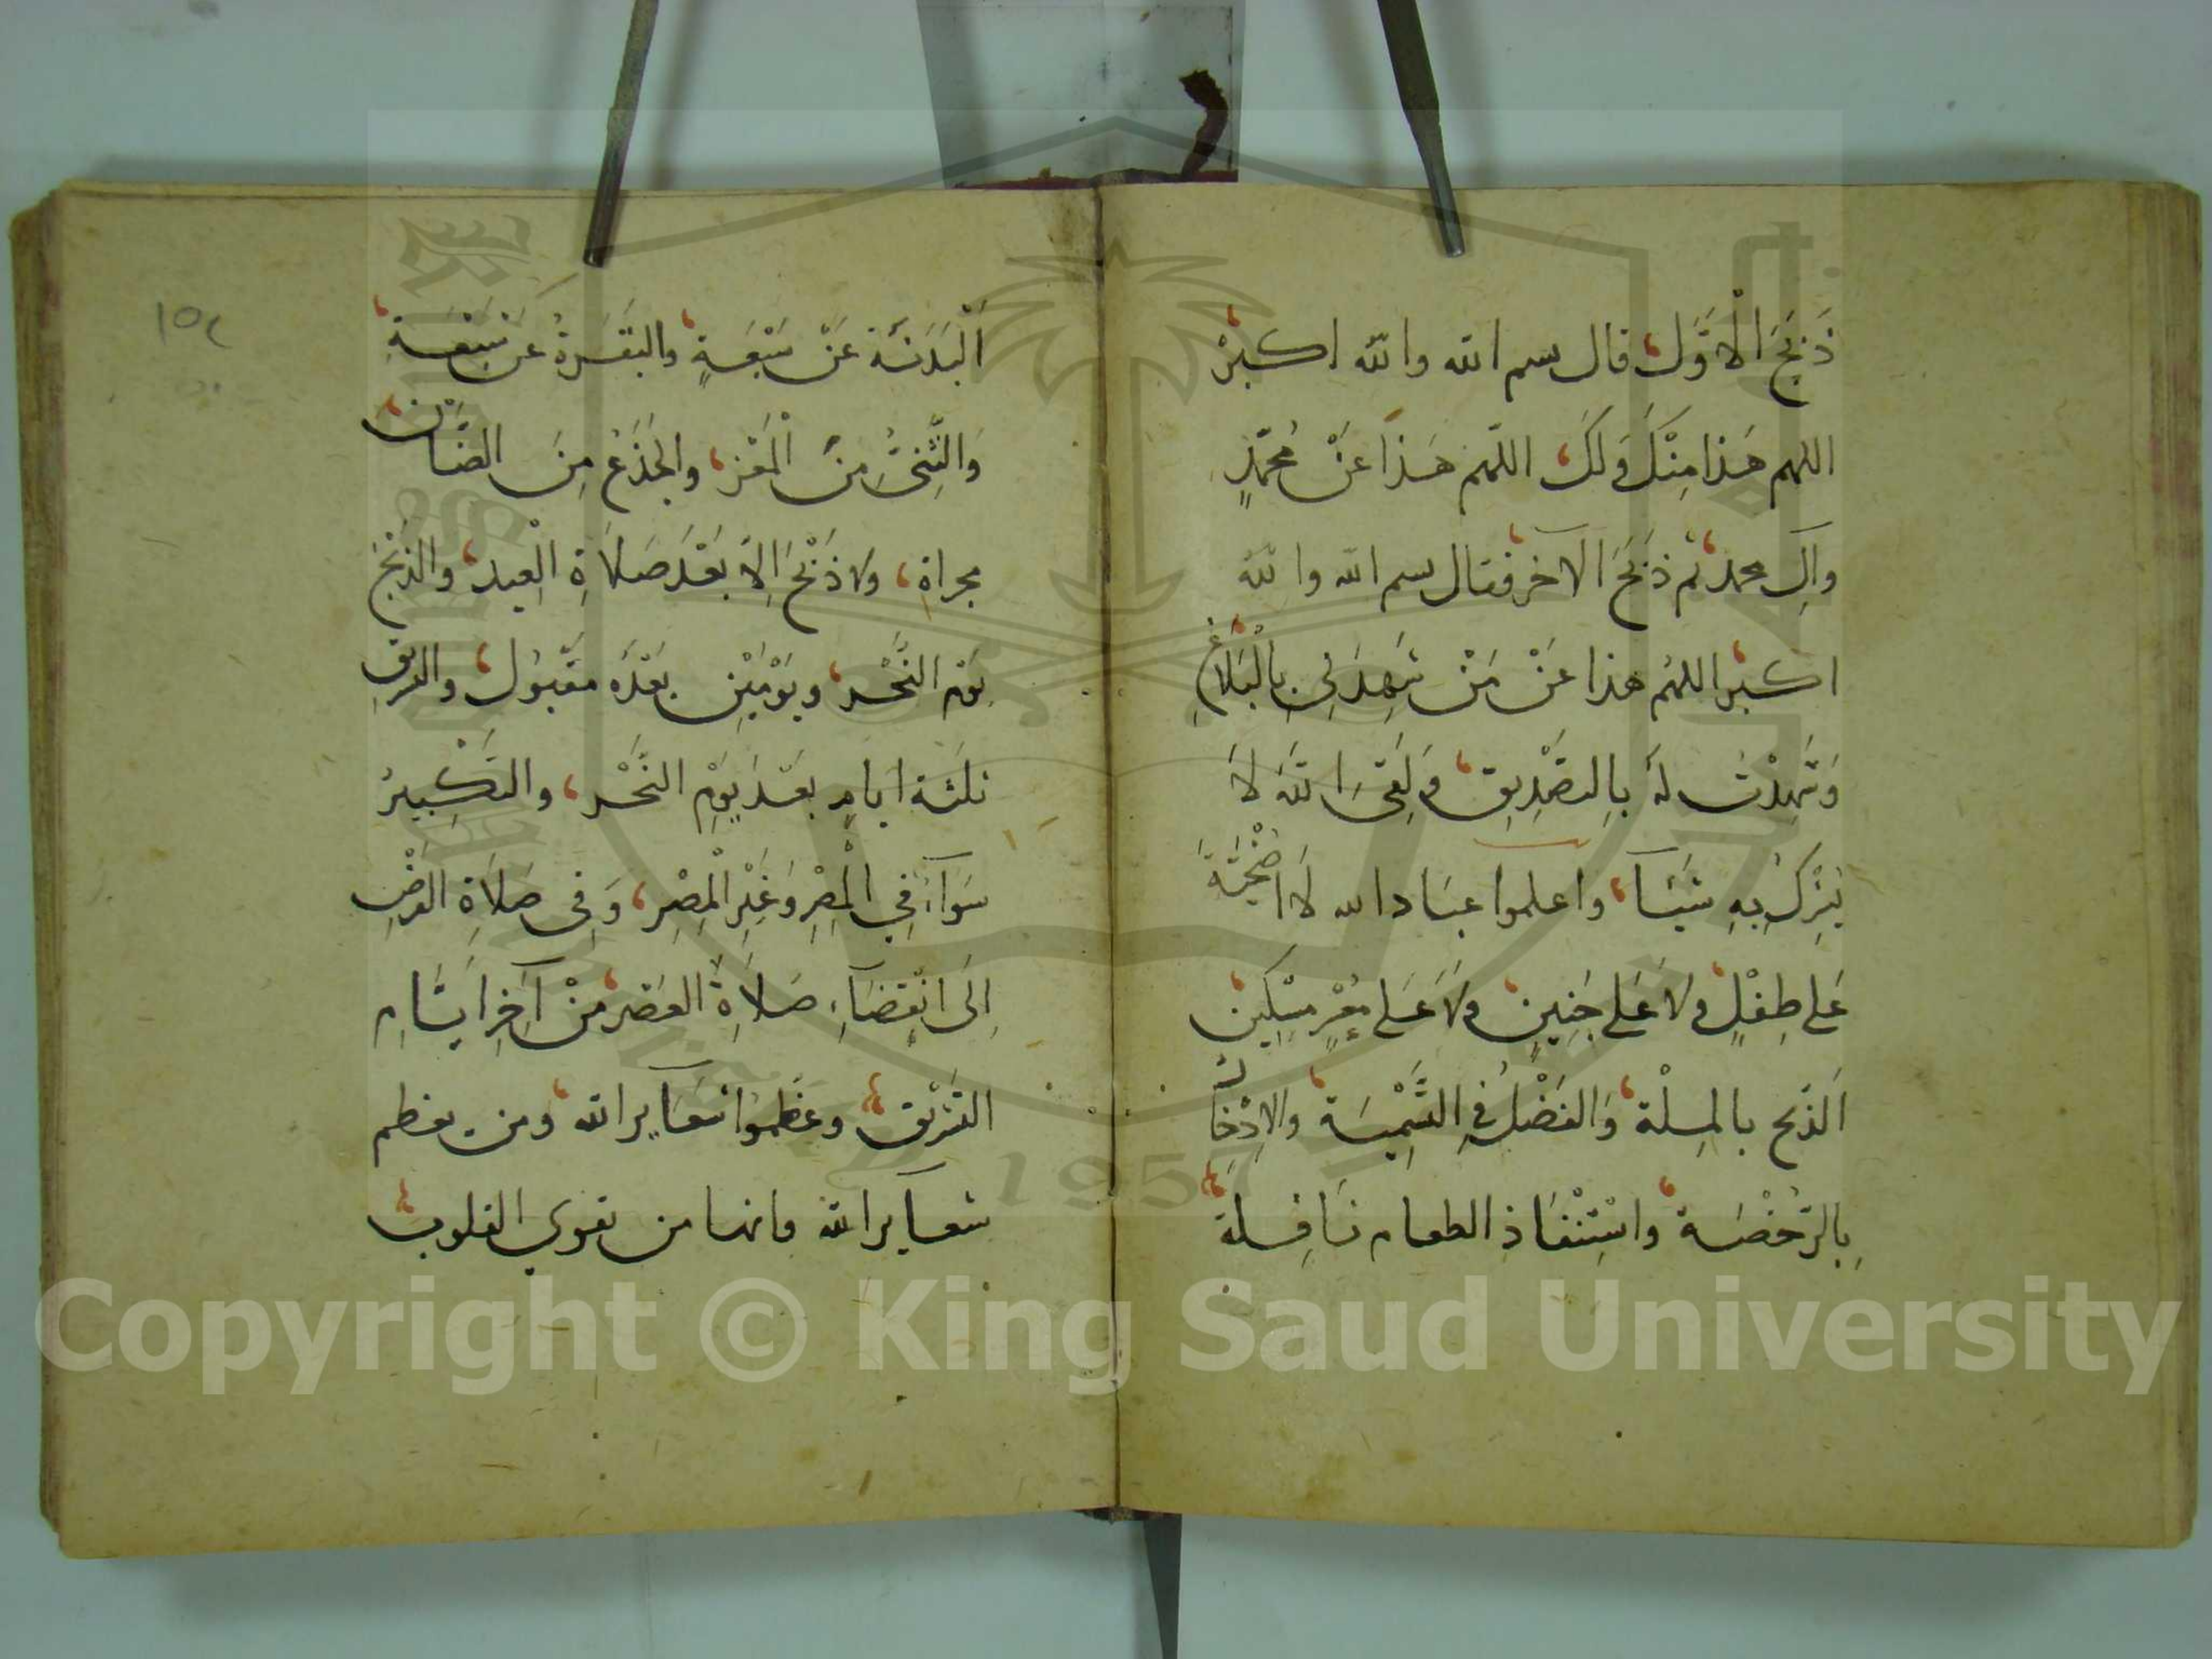 ذَبَحَ الْاَوَّل قال بسم الله والله اكبرْ
اللهم هَذا مِنْكَ وَلَكَ اللّهم هَذَا عَنْ مُحمّدٍ
وآلِ محمد ثم ذَبَحَ الآخر فقال بسم الله واللهُ
اكبر اللهُم هذا عَنْ مَنْ شَهِدَ لِي بِالْبَلَاغِ
وَشَهِدْتُ لَهُ بِالتصْدِيقِ وَلَقِىَ اللهَ لَا
يُشْرِكُ بِهِ شَيْئاً واعلموا عبَاد الله لَا اُضْحِيَّةَ
عَلى طِفْلٍ ولا عَلى جَنِينٍ وَلَا عَلى مُعْسِرٍ مِسْكِينٍ
اَلذّبح بالمِلّة وَالفَضْلُ فِي السَّمِينَة والاِدّخَارُ
بِالرّخْصَة واسْتِنْفَاذِ الطعام نَافِلة
١٥٤
اَلْبَدَنَة عَنْ سَبْعَةٍ والبَقَرَةُ عَنْ سَبْعَةٍ
وَالثَّنِيُّ مِنَ الْمَعْزِ والجَذَعُ مِنَ الضَّان
مجزاة ولا ذَبْحَ اِلَّا بَعْدَ صَلَاةِ الْعِيد والذبْحُ
يَوْم النَّحْر ويَوْمَيْنِ بَعْدَهُ مقْبُول والتشريقُ
ثلثة ايامٍ بعْدَ يَوْمِ النَّحْر والتكْبِيرُ
سَوَآءٌ فِي الْمِصْرِ وَغَيْرِ الْمِصْرِ وَفِي صَلاَةِ الفرضِ
اِلَى انْقِضَآءِ صَلاَةِ العَصْر مِنْ آخِرِ اَيَّامِ
التشْرِيق وعَظِّموا شعَآير الله ومن يعظم
شعآير الله فانها من تقوي القلوب
Copyright © King Saud University
1957